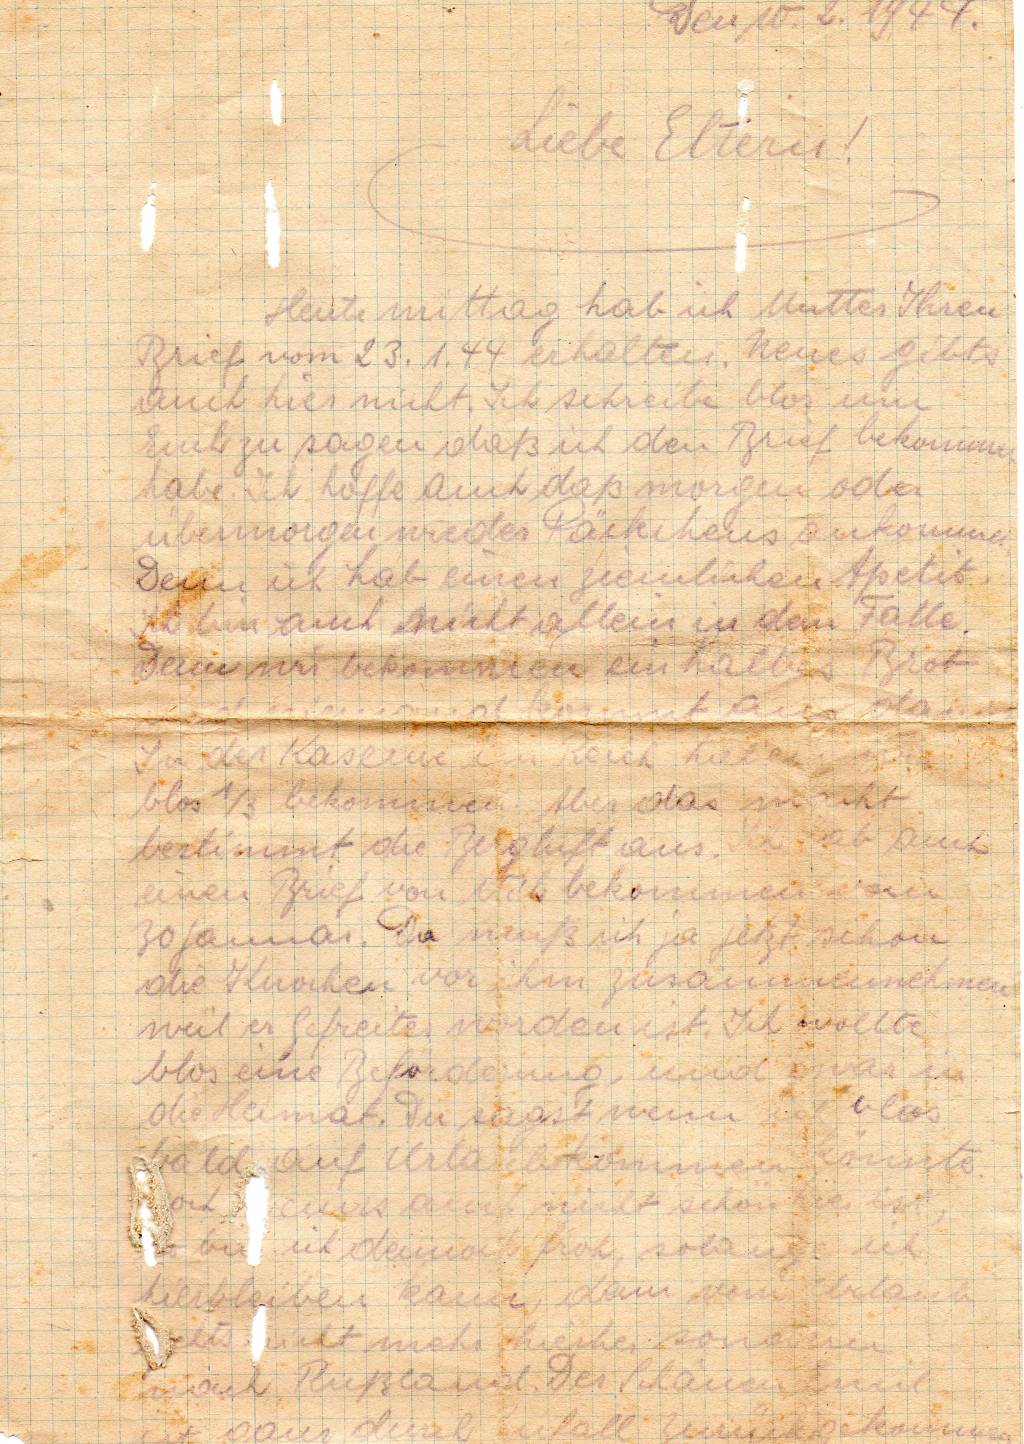 Den 10. 2. 1944.
Liebe Eltern!
Heute mittag hab ich Mutter Ihren
Brief vom 23. 1. 44 erhalten. Neues gibts
auch hier nicht. Ich schreibe blos um
Euch zu sagen daß ich den Brief bekommen
habe. Ich hoffe auch daß morgen oder
übermorgen wieder Päckchens ankommen.
Denn ich hab einen ziemlichen Apetit.
Ich bin auch nicht allein in dem Falle.
Denn wir bekommen ein halbes Brot
und niemand kommt aus damit
In der Kaserne im Reich haben wir
blos 1/3 bekommen. Aber das macht
bestimmt die Bergluft aus. Ich hab auch
einen Brief von bekommen vom
30 Januar. Da muß ich ja jetzt schon
die Knochen vor ihm zusammennehmen
weil er Gefreiter worden ist. Ich wollte
blos eine Beförderung, und zwar in
die Heimat. Du sagst wenn ich blos
bald auf Urlaub kommen könnte.
auch nicht schön hier ist,
so bin ich dennoch froh, solange ich
hierbleiben kann, denn vom Urlaub
gehts nicht mehr hierher sondern
nach Rußland. Der Emil
ist ganz durch Zufall zurückgekommen